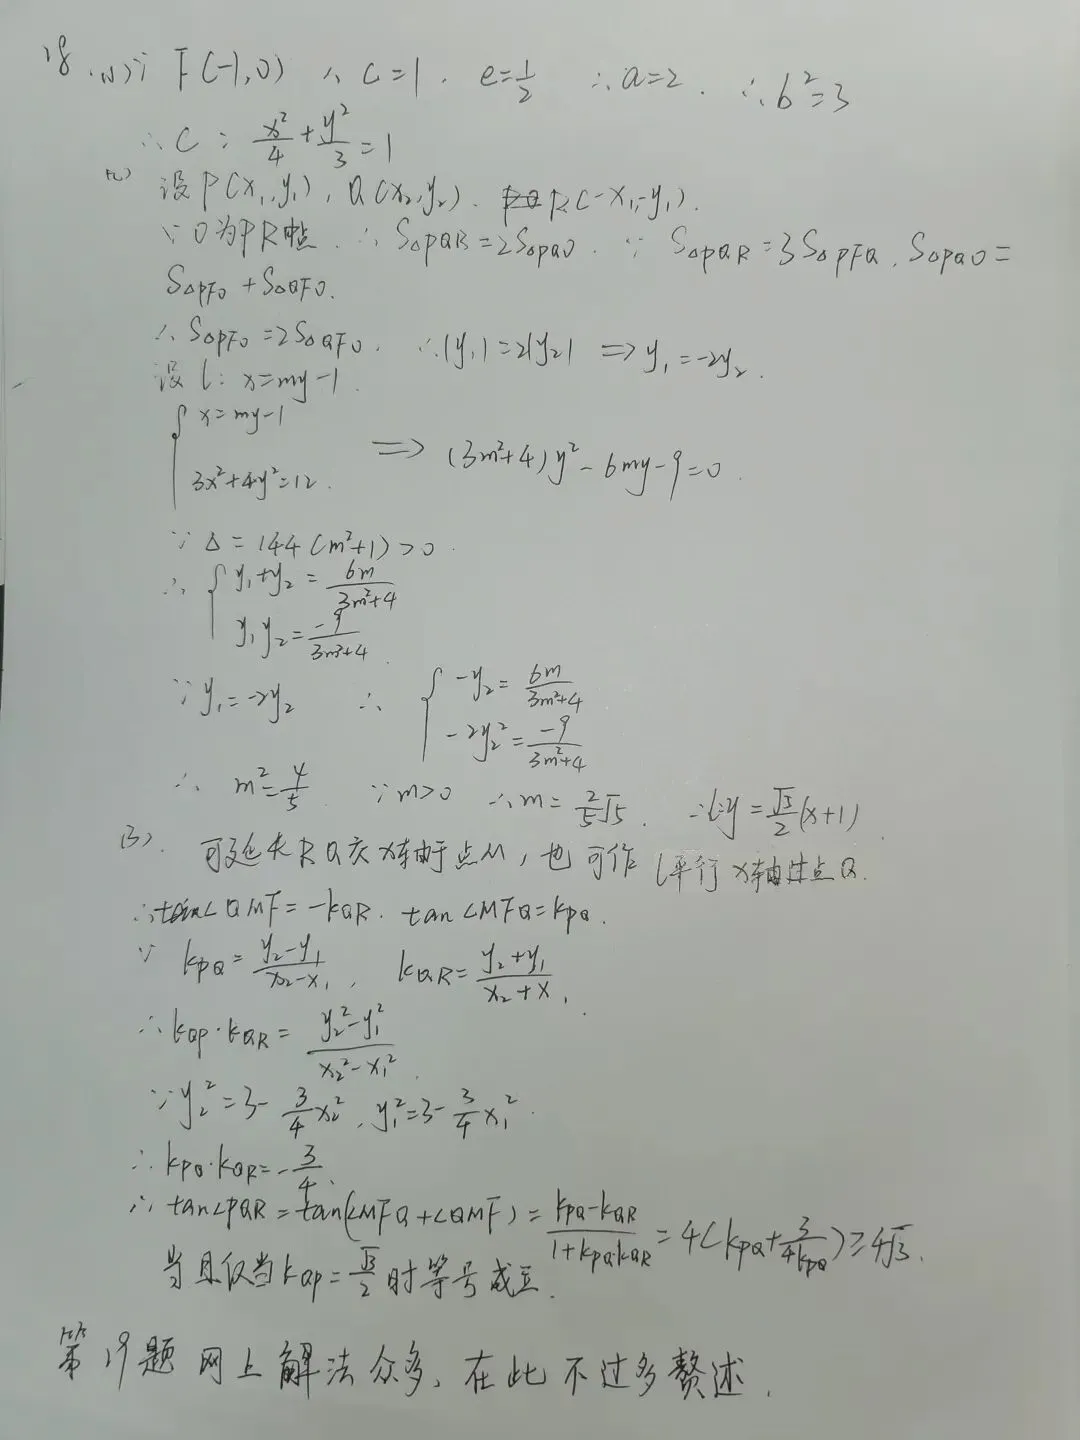 18.(1)∵ F(-1,0) ∴ c=1. e=1/2 ∴a=2. ∴b²=3
∴C: x²/4+y²/3=1
(2) 设P(x₁,y₁), Q(x₂,y₂). R(-x₁,-y₁).
∵O为PR中点. ∴S△PQR=2S△PQO. ∵ S△PQR=3S△PFQ, S△PQO=
S△PFO+S△QFO.
∴S△PFO=2S△QFO. ∴|y₁|=2|y₂| ⟹ y₁=-2y₂.
设l: x=my-1.
{x=my-1
3x²+4y²=12. ⟹ (3m²+4)y²-6my-9=0.
∵Δ=144(m²+1)>0.
∴{y₁+y₂=6m/(3m²+4)
y₁y₂=-9/(3m²+4).
∵y₁=-2y₂ ∴{-y₂=6m/(3m²+4)
-2y₂²=-9/(3m²+4)
∴ m²=4/5. ∵m>0 ∴m=2/5√5. ∴l:y=√5/2(x+1).
(3). 可延长RQ交x轴于点M,也可作l平行x轴过点Q.
∴tan∠QMF=-kQR. tan∠MFQ=kPQ.
∵ kPQ=(y₂-y₁)/(x₂-x₁), kQR=(y₂+y₁)/(x₂+x₁)
∴kQP·kQR=(y₂²-y₁²)/(x₂²-x₁²).
∵y₂²=3-3/4x₂², y₁²=3-3/4x₁².
∴kPQ·kQR=-3/4.
∴tan∠PQR=tan(∠MFQ+∠QMF)=(kPQ-kQR)/(1+kPQ·kQR)=4(kPQ+3/(4kPQ))≥4√3.
当且仅当kQP=√3/2时等号成立.
第19题网上解法众多,在此不过多赘述.